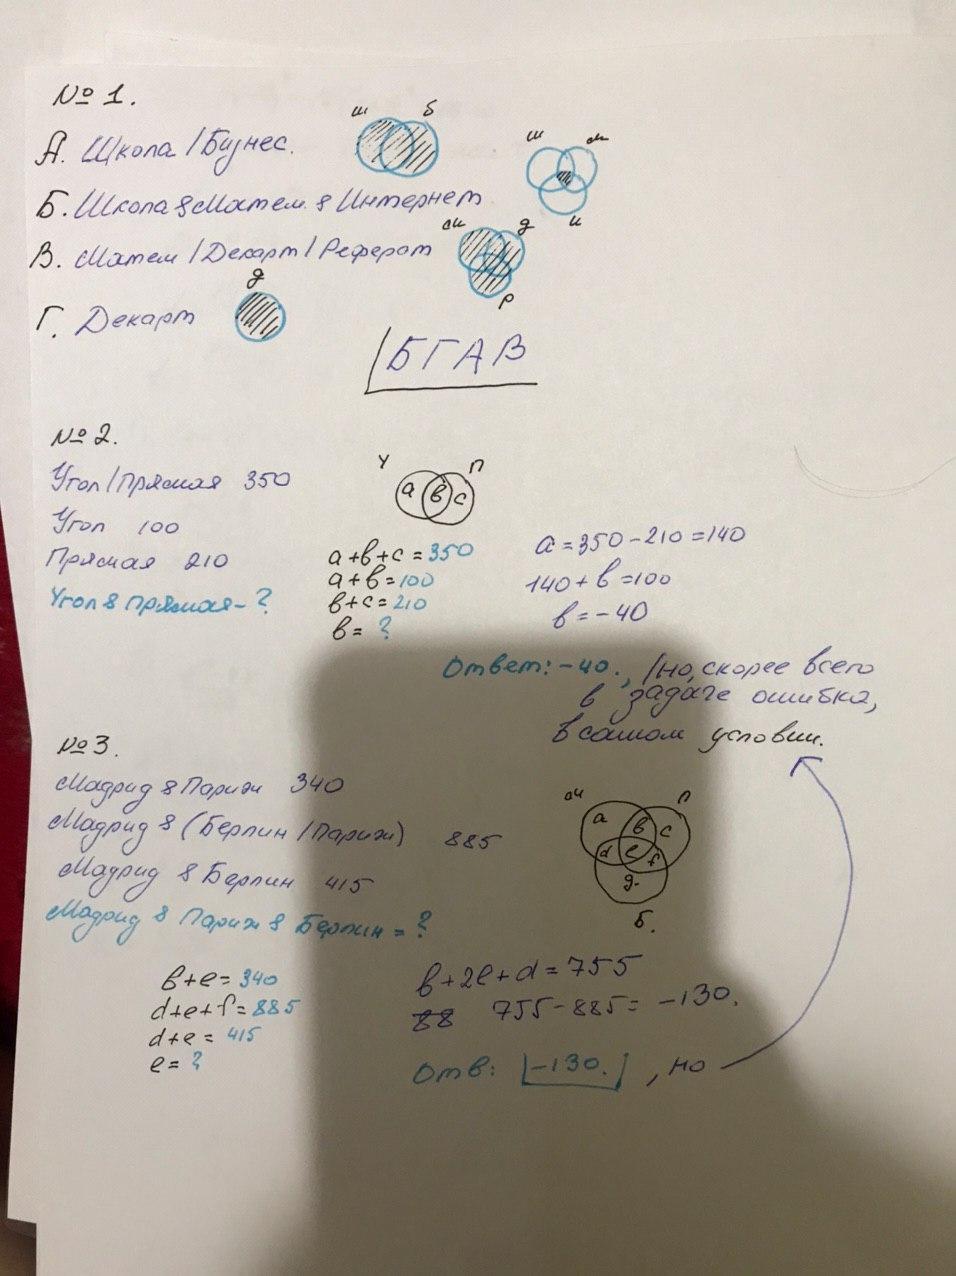 № 1.
ш б
А. Школа | Бизнес.
ш м
Б. Школа & Матем. & Интернет
и
м д
В. Матем | Декарт | Реферат
р
д
Г. Декарт
БГАВ
№ 2.
У П
Угол | Прямая 350
a в c
Угол 100
Прямая 210
Угол & Прямая - ?
a + в + c = 350
a + в = 100
в + c = 210
в = ?
a = 350 - 210 = 140
140 + в = 100
в = - 40
Ответ: -40., |но, скорее всего
в задаче ошибка,
в самом условии.
№ 3.
Мадрид & Париж 340
Мадрид & (Берлин | Париж) 885
Мадрид & Берлин 415
Мадрид & Париж & Берлин = ?
м п
a в c
d e f
g.
Б.
в + e = 340
d + e + f = 885
d + e = 415
e = ?
в + 2e + d = 755
88 755 - 885 = -130.
Отв: |-130.| , но